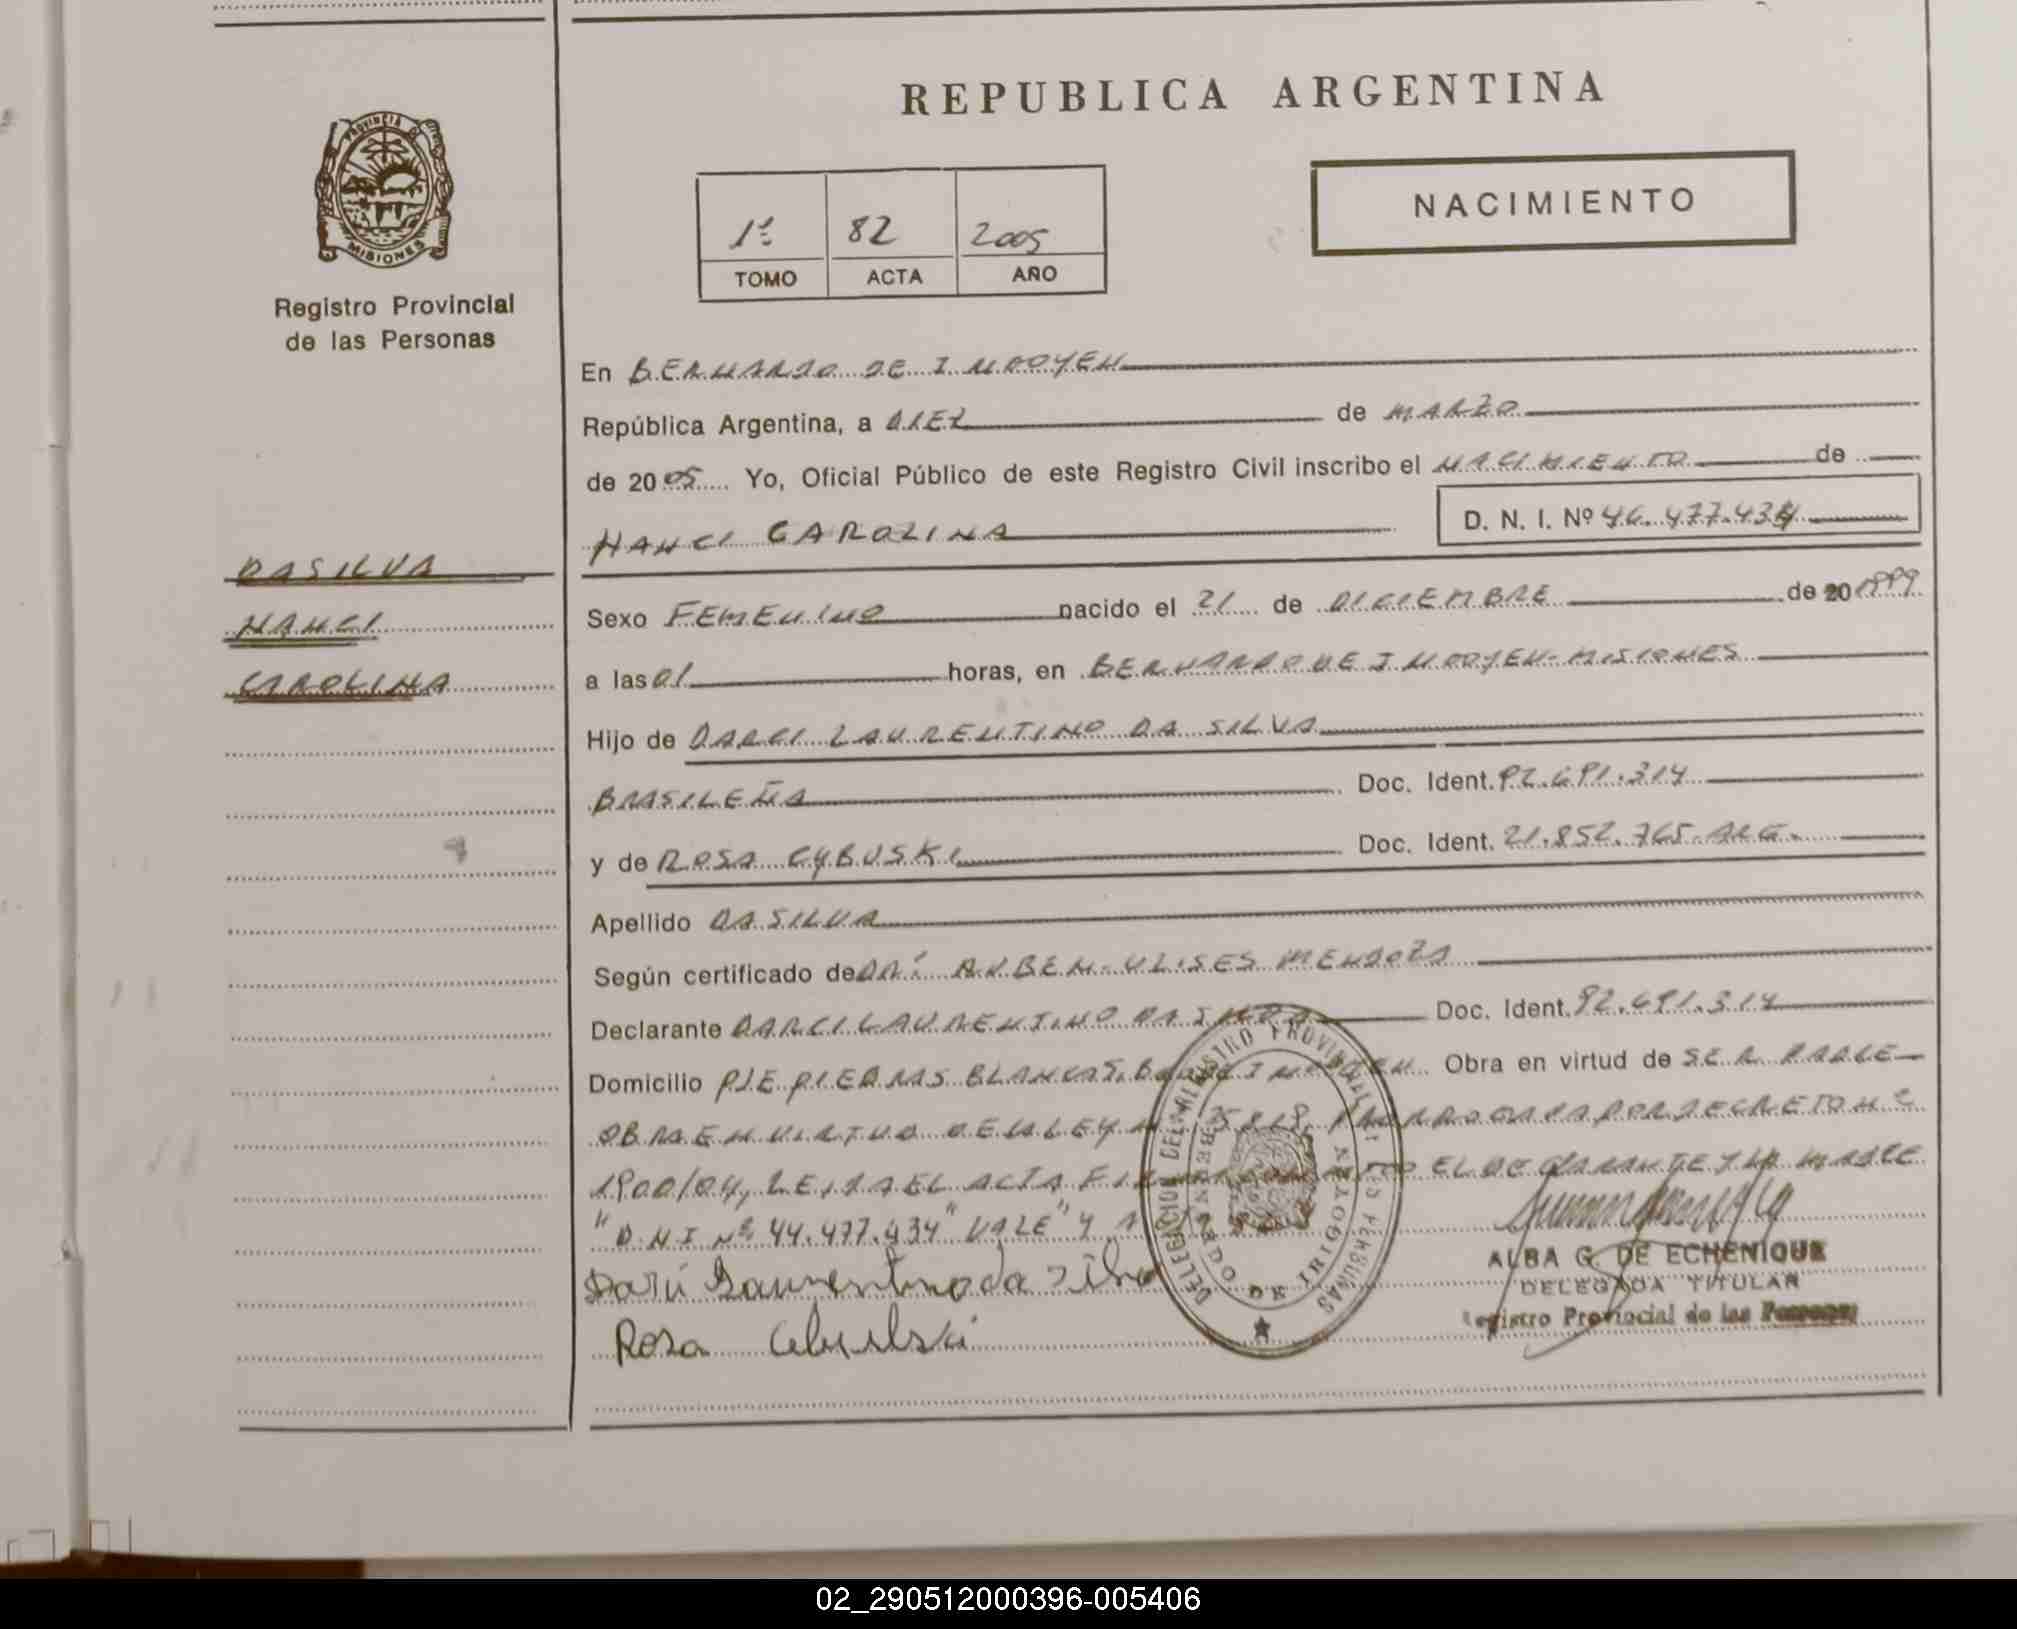 REPUBLICA ARGENTINA
PROVINCIA DE
MISIONES
Registro Provincial
de las Personas
1º 82 2005
TOMO ACTA AÑO
NACIMIENTO
En BERNARDO DE IRIGOYEN
República Argentina, a DIEZ de MARZO
de 2005 Yo, Oficial Público de este Registro Civil inscribo el NACIMIENTO de
NANCI CAROLINA
D. N. I. Nº 46.477.434
DASILVA
NANCI
CAROLINA
Sexo FEMENINO nacido el 21 de DICIEMBRE de 20 1999
a las 01 horas, en BERNARDO DE IRIGOYEN-MISIONES
Hijo de DARCI LAURENTINO DA SILVA
BRASILEÑA Doc. Ident. 92.691.314
y de ROSA CYBUSKI Doc. Ident. 21.852.765-ARG.
Apellido DASILVA
Según certificado de DR. RUBEN-ULISES MENDOZA
Declarante DARCI LAURENTINO DA SILVA Doc. Ident. 92.691.314
Domicilio PJE PIEDRAS BLANCAS, Obra en virtud de SER PADRE
OBRA EN VIRTUD DE LA LEY Nº PRORROGADA POR DECRETO Nº
1900/04, LEIDA EL ACTA EL DECLARANTE Y LA MADRE
"D.N.I Nº 44.477.434" VALE"
Laurentino da Silva
Rosa
DELEGACION DEL REGISTRO PROVINCIAL DE LAS PERSONAS
BERNARDO DE IRIGOYEN
ALBA G. DE ECHENIQUE
DELEGADA TITULAR
Registro Provincial de las Personas
02_290512000396-005406